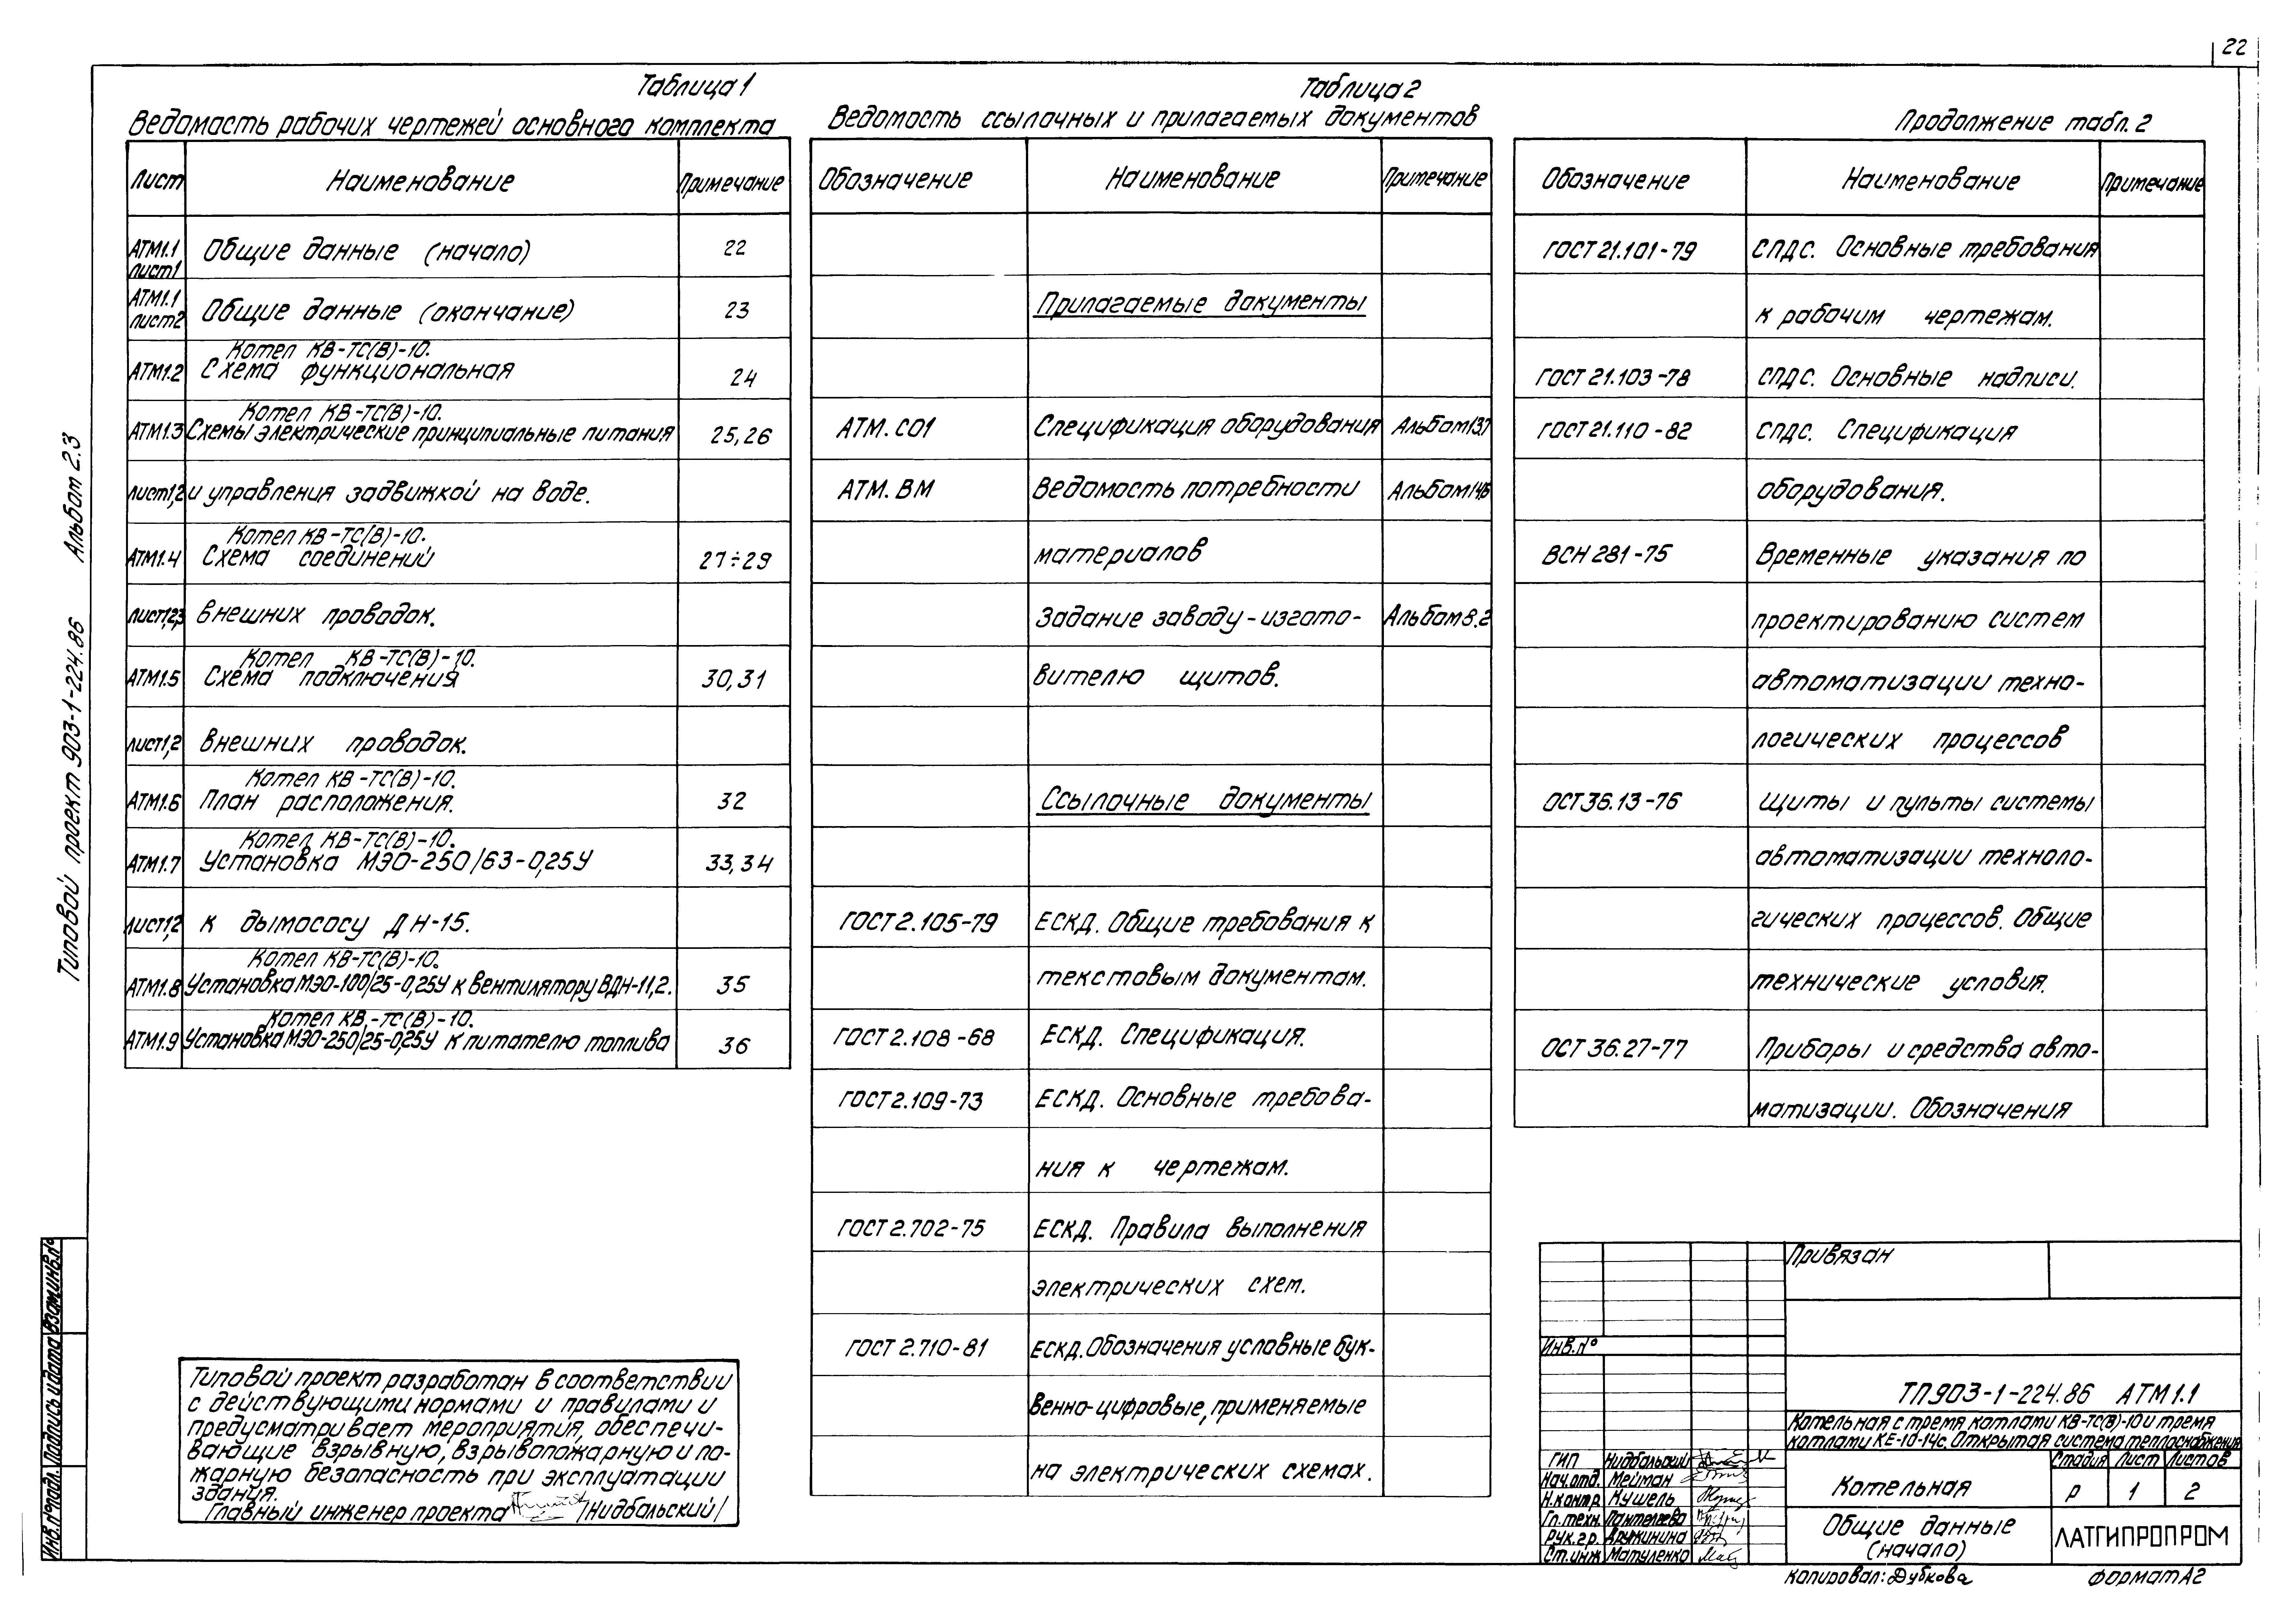 22
Таблица 1
Ведомость рабочих чертежей основного комплекта
Лист Наименование Примечание
АТМ1.1 лист1 Общие данные (начало) 22
АТМ1.1 лист2 Общие данные (окончание) 23
Котел КВ-ТС(В)-10.
АТМ1.2 Схема функциональная 24
Котел КВ-ТС(В)-10.
АТМ1.3 Схемы электрические принципиальные питания 25,26
лист1,2 и управления задвижкой на воде.
Котел КВ-ТС(В)-10.
АТМ1.4 Схема соединений 27÷29
лист1,2,3 внешних проводок.
Котел КВ-ТС(В)-10.
АТМ1.5 Схема подключения 30,31
лист1,2 внешних проводок.
Котел КВ-ТС(В)-10.
АТМ1.6 План расположения. 32
Котел КВ-ТС(В)-10.
АТМ1.7 Установка МЭО-250/63-0,25У 33,34
лист1,2 к дымососу ДН-15.
Котел КВ-ТС(В)-10.
АТМ1.8 Установка МЭО-100/25-0,25У к вентилятору ВДН-11,2. 35
Котел КВ-ТС(В)-10.
АТМ1.9 Установка МЭО-250/25-0,25У к питателю топлива 36
Таблица 2
Ведомость ссылочных и прилагаемых документов
Обозначение Наименование Примечание
Прилагаемые документы
АТМ.СО1 Спецификация оборудования Альбом
АТМ.ВМ Ведомость потребности Альбом
материалов
Задание заводу-изгото- Альбом 8.2
вителю щитов.
Ссылочные документы
ГОСТ 2.105-79 ЕСКД. Общие требования к
текстовым документам.
ГОСТ 2.108-68 ЕСКД. Спецификация.
ГОСТ 2.109-73 ЕСКД. Основные требова-
ния к чертежам.
ГОСТ 2.702-75 ЕСКД. Правила выполнения
электрических схем.
ГОСТ 2.710-81 ЕСКД. Обозначения условные бук-
венно-цифровые, применяемые
на электрических схемах.
Продолжение табл. 2
Обозначение Наименование Примечание
ГОСТ 21.101-79 СПДС. Основные требования
к рабочим чертежам.
ГОСТ 21.103-78 СПДС. Основные надписи.
ГОСТ 21.110-82 СПДС. Спецификация
оборудования.
ВСН 281-75 Временные указания по
проектированию систем
автоматизации техно-
логических процессов
ОСТ 36.13-76 Щиты и пульты системы
автоматизации техноло-
гических процессов. Общие
технические условия.
ОСТ 36.27-77 Приборы и средства авто-
матизации. Обозначения
Типовой проект 903-1-224.86 Альбом 2.3
Инв.№подл. Подпись и дата Взам.инв.№
Типовой проект разработан в соответствии
с действующими нормами и правилами и
предусматривает мероприятия, обеспечи-
вающие взрывную, взрывопожарную и по-
жарную безопасность при эксплуатации
здания.
Главный инженер проекта /Нидбальский/
Привязан
Инв.№
ТП 903-1-224.86 АТМ1.1
Котельная с тремя котлами КВ-ТС(В)-10 и тремя
котлами КЕ-10-14с. Открытая система теплоснабжения
ГИП Нидбальский
Нач.отд. Мейман
Н.контр. Мушель
Гл.техн. Пантелеева
Рук.гр. Дружинина
Ст.инж Матуленко
Котельная
Стадия Лист Листов
Р 1 2
Общие данные
(начало)
ЛАТГИПРОПРОМ
Копировал: Дубкова Формат А2